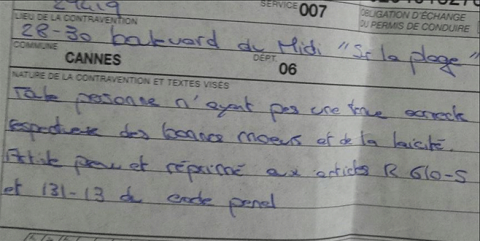 SERVICE 007
LIEU DE LA CONTRAVENTION
OBLIGATION D'ÉCHANGE
DU PERMIS DE CONDUIRE
28-30 boulevard du Midi "Sur la plage"
COMMUNE CANNES DÉPT. 06
NATURE DE LA CONTRAVENTION ET TEXTES VISÉS
Toute personne n'ayant pas une tenue correcte
respectueuse des bonnes moeurs et de la laïcité.
prévu et réprimé aux articles R 610-5
et 131-13 du code pénal